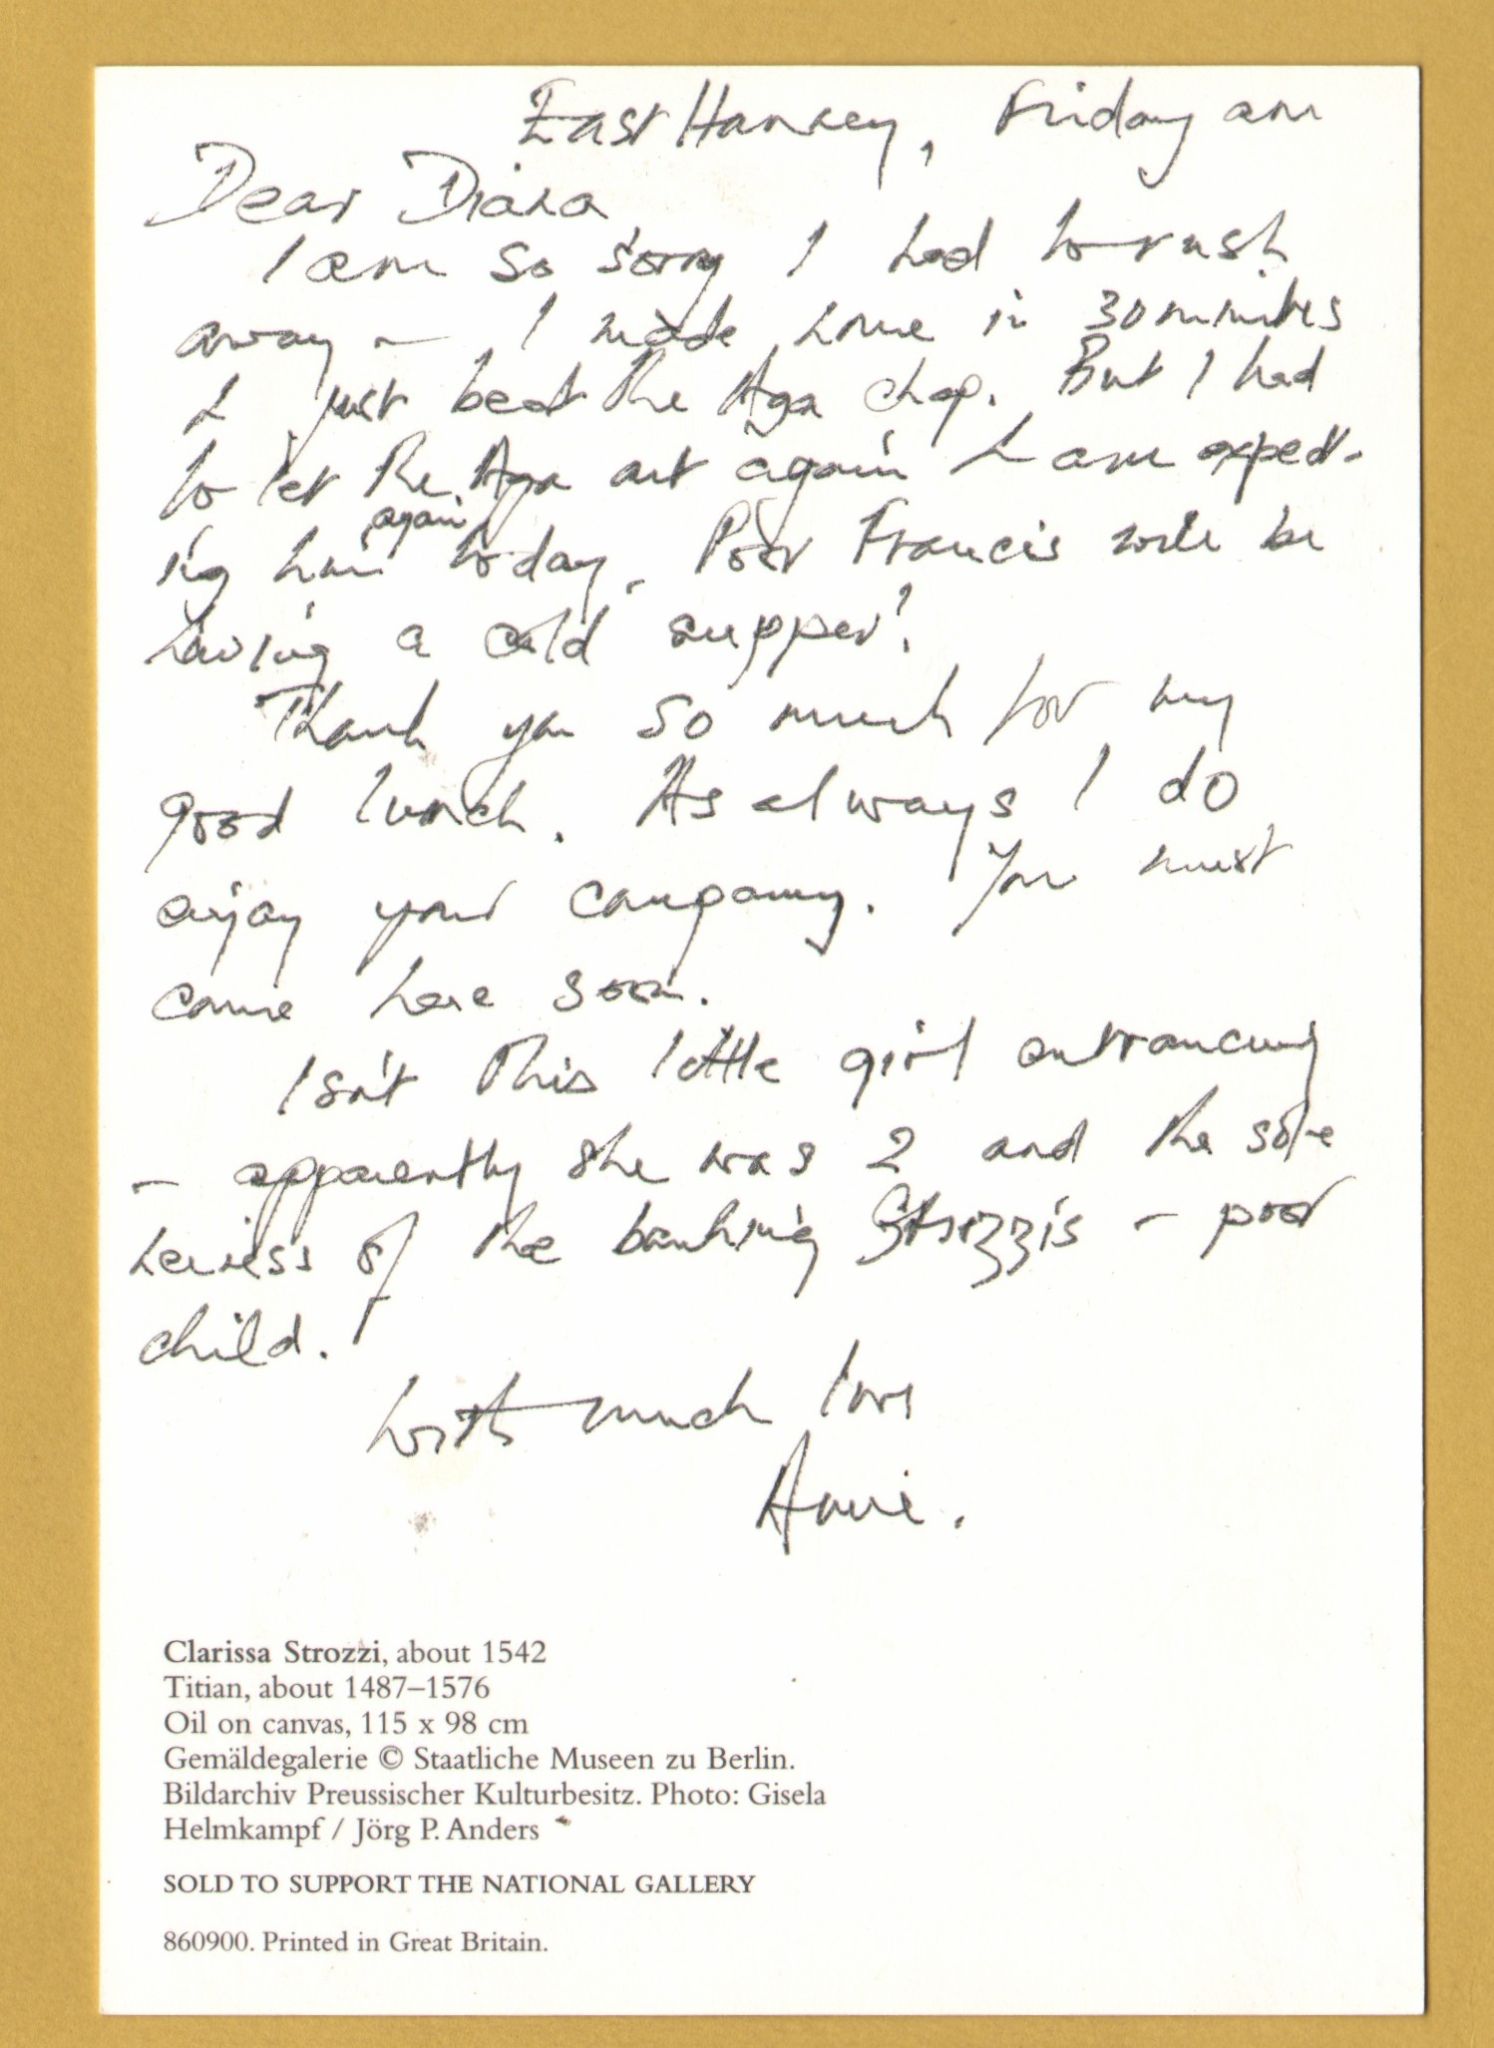 East Hanney, Friday am
Dear Diana
I am so sorry I had to rush
away – I made home in 30 minutes
& just beat the Aga chap. But I had
to let the Aga out again & am expect-
ing him again today. Poor Francis will be
having a cold supper!
Thank you so much for my
good lunch. As always I do
enjoy your company. You must
come here soon.
Isn't this little girl entrancing
– apparently she was 2 and the sole
heiress of the banking Strozzis – poor
child.
With much love
Annie.
Clarissa Strozzi, about 1542
Titian, about 1487–1576
Oil on canvas, 115 x 98 cm
Gemäldegalerie © Staatliche Museen zu Berlin.
Bildarchiv Preussischer Kulturbesitz. Photo: Gisela
Helmkampf / Jörg P. Anders
SOLD TO SUPPORT THE NATIONAL GALLERY
860900. Printed in Great Britain.